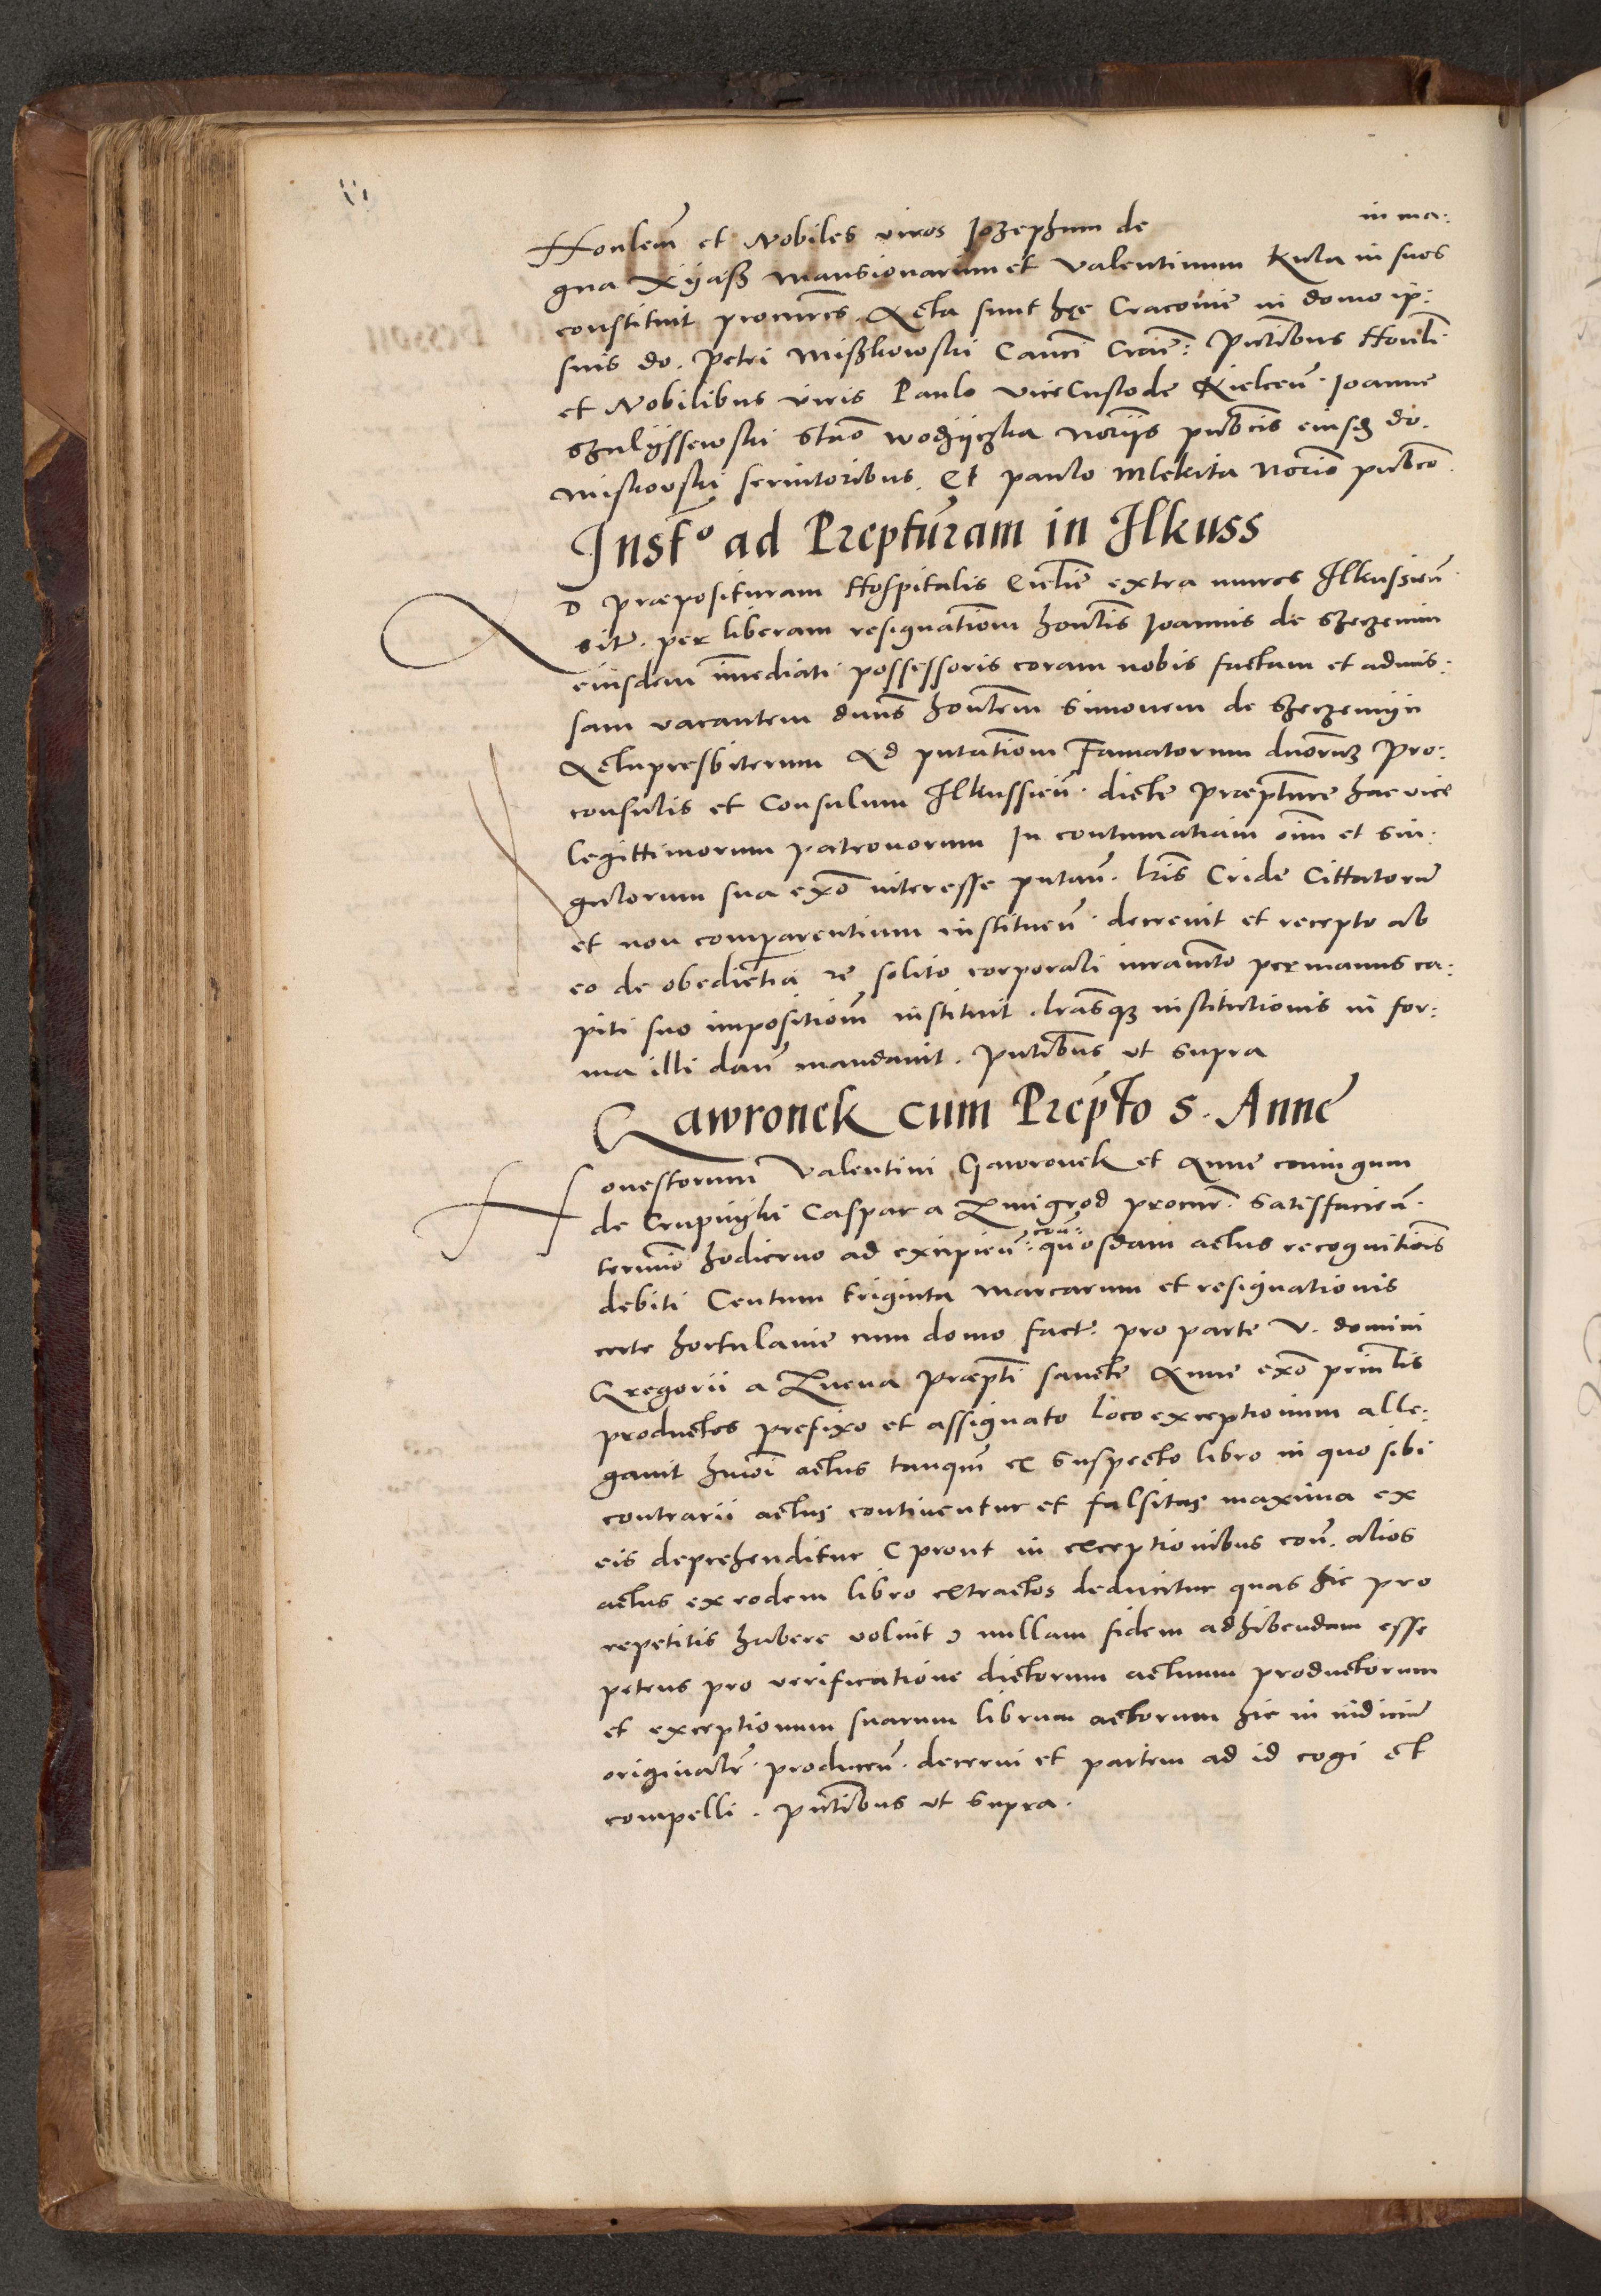 Honlem̄ et Nobiles viros Jozephum de in ma:
gna Xÿaß mansionarium et Valentinum Kula in suos
constituit procur̄es. Acta sunt hęc Cracovie in domo ip:
sius do. Petri Mißkowski Canci Crac̄: Pn̄tibus Honli
et Nobilibus viris Paulo ViceCustode Kielcen̄. Joanne
Szulÿssewski Stāo wodzÿczka Nor̄iis pub̄cis eiusd̄ do.
Miskovski servitoribus. Et paulo Mlekita Nor̄io pub̄co
Inst̄o ad Prept̄uram in Ilkuss
AD præposituram Hospitalis Eccl̄ie extra muros Ilkussien̄
sit̄. per liberam resignatiom̄ hon̄lis Joannis de Szczemin
eiusdem im̄ediati possessoris coram nobis factam et admis:
sam vacantem dn̄us hon̄lem Simonem de Szczemÿn
Actupresbiterum Ad pn̄tatiom̄ Famatorum dn̄orum Pro:
consulis et Consulum Ilkussien̄. dicte præpt̄ure hac vice
Legittimorum patronorum In contumatiam om̄i et sin:
gulorum sua ex̄o interesse putan̄. Lr̄is Cride Cittatorū
et non comparentium instituen̄. decrevit et recepto ab
eo de obedīetia re solito corporali iuram̄to per manus ca:
piti suo impositiom̄ instituit. Lr̄asq̄ institutionis in for:
ma illi dan̄ mandavit. pn̄tibus ut supra
Gawronek cum Prep̄to S. Anne
Honestorum Valentini Gawronek et Anne coniugum
de Crupnyki Caspar a Zmigrod procur̄. satisfacien̄.
termīo hodierno ad excipien̄: con̄: quosdam actus recognitiōis
debiti Centum triginta marcarum et resignationis
certe hortulanie cum domo fact̄. pro parte V. domini
Gregorii a Znena Præp̄ti sancte Anne ex̄o prin̄lis
productos prefixo et assignato loco exceptionum alle:
gavit hmōi actus tanqm̄ ex suspecto libro in quo sibi
contrarii actus continentur et falsitas maxima ex
eis deprehenditur (prout in exceptionibus con̄. alios
actus ex eodem libro extractos deducitur quas hic pro
repetitis habere voluit) nullam fidem adhibendam esse
petens pro verificatione dictorum actuum productorum
et exceptionum suarum librum actorum hic in iudiciū
original̄r. producen̄. decerni et partem ad id cogi et
compelli. pn̄tibus ut supra.